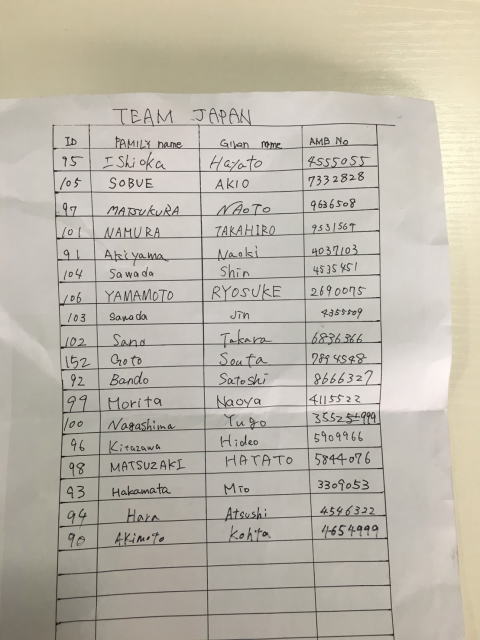 TEAM JAPAN
ID FAMILY name Given name AMB No
95 IShioka Hayato 4555055
105 SOBUE AKIO 7332828
97 MATSUKURA NAOTO 9636508
101 NAMURA TAKAHIRO 9531567
91 Akiyama Naoki 4037103
104 Sawada Shin 4535451
106 YAMAMOTO RYOSUKE 2690075
103 Sawada Jin
102 Sano Takara 6836366
152 Goto Souta 7894548
92 Bando Satoshi 8666327
99 Morita Naoya 4115522
100 Nagashima Yugo
96 Kitazawa Hideo 5909966
98 MATSUZAKI HATATO 5844076
93 Hakamata Mio 3309053
94 Hara Atsushi 4546322
90 AKimoto Kohta 4654999